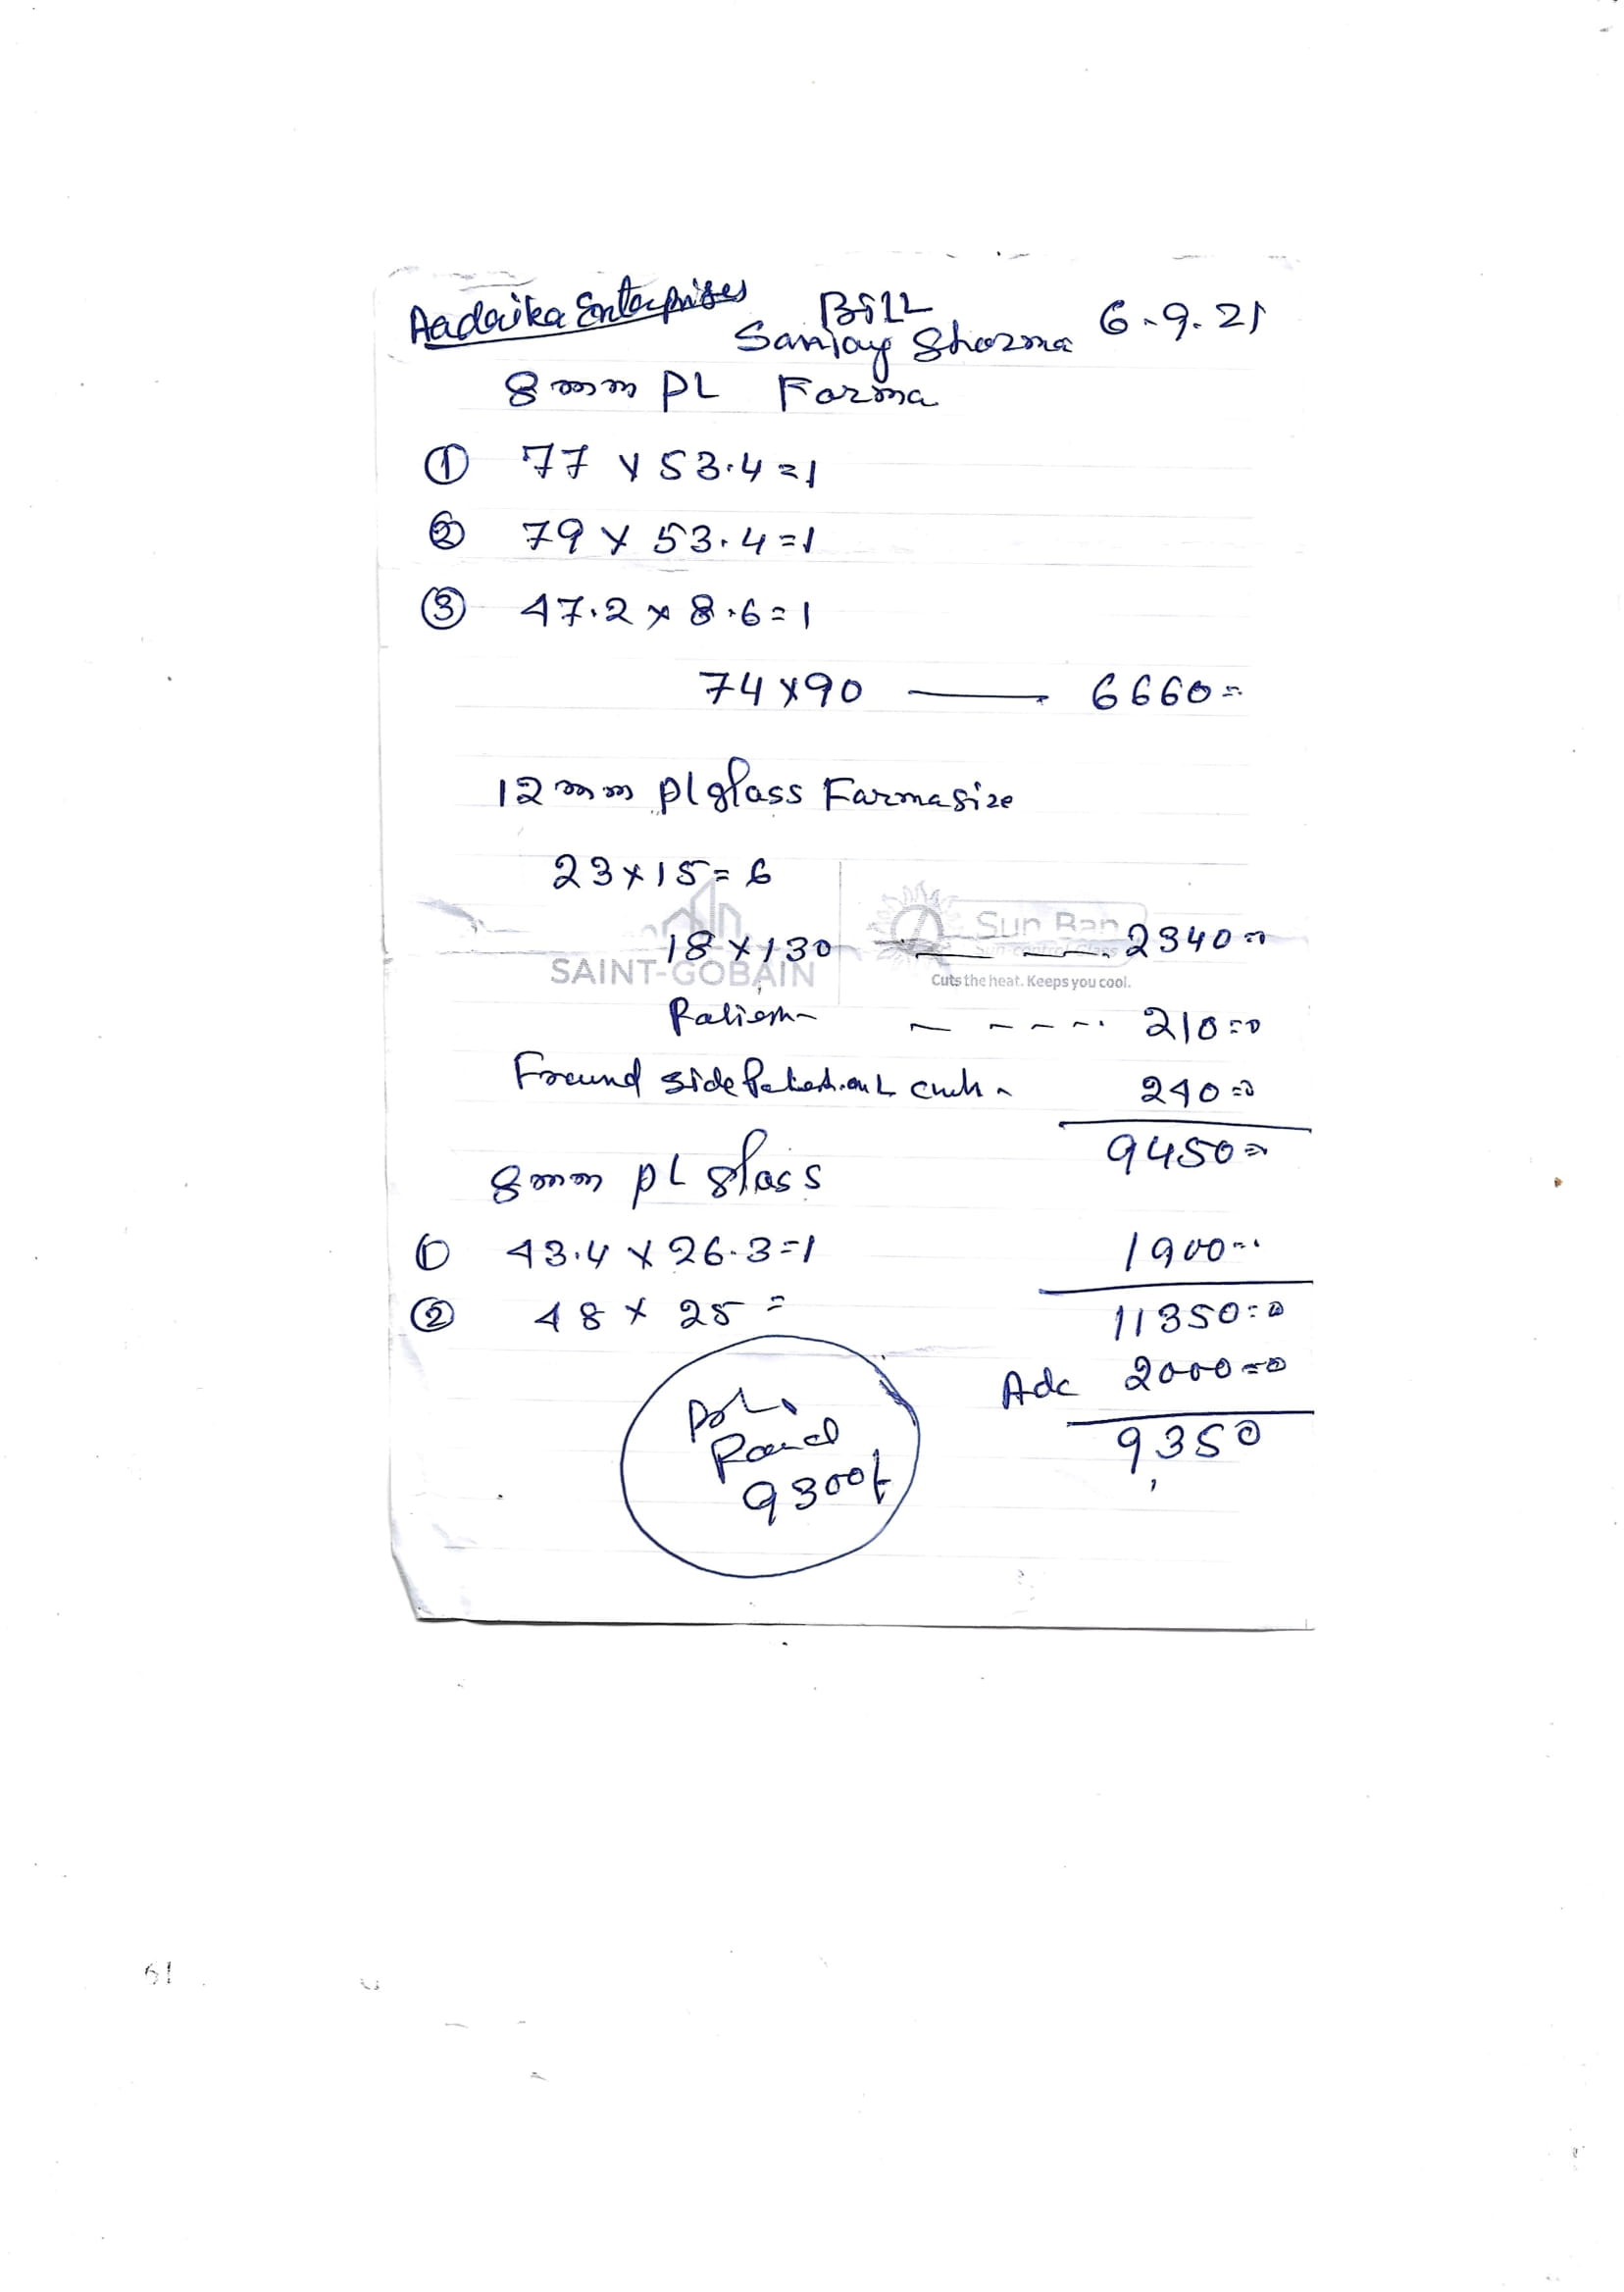 Aadvika Enterprises
Bill 6-9-21
Sanjay Sharma
8mm PL Farma
① 77 x 53.4=1
② 79 x 53.4=1
③ 47.2 x 8.6=1
74x90 — 6660=
12mm pl glass Farma size
23x15=6
18x130 — — 2340=
SAINT-GOBAIN
Sun Ban
sun control Glass
Cuts the heat. Keeps you cool.
- - - - 210=0
side 240=0
9450=
8mm pL glass
① 43.4 x 26.3=1 1900=
② 48 x 25 = 11350=0
Adc 2000=0
9350
9300